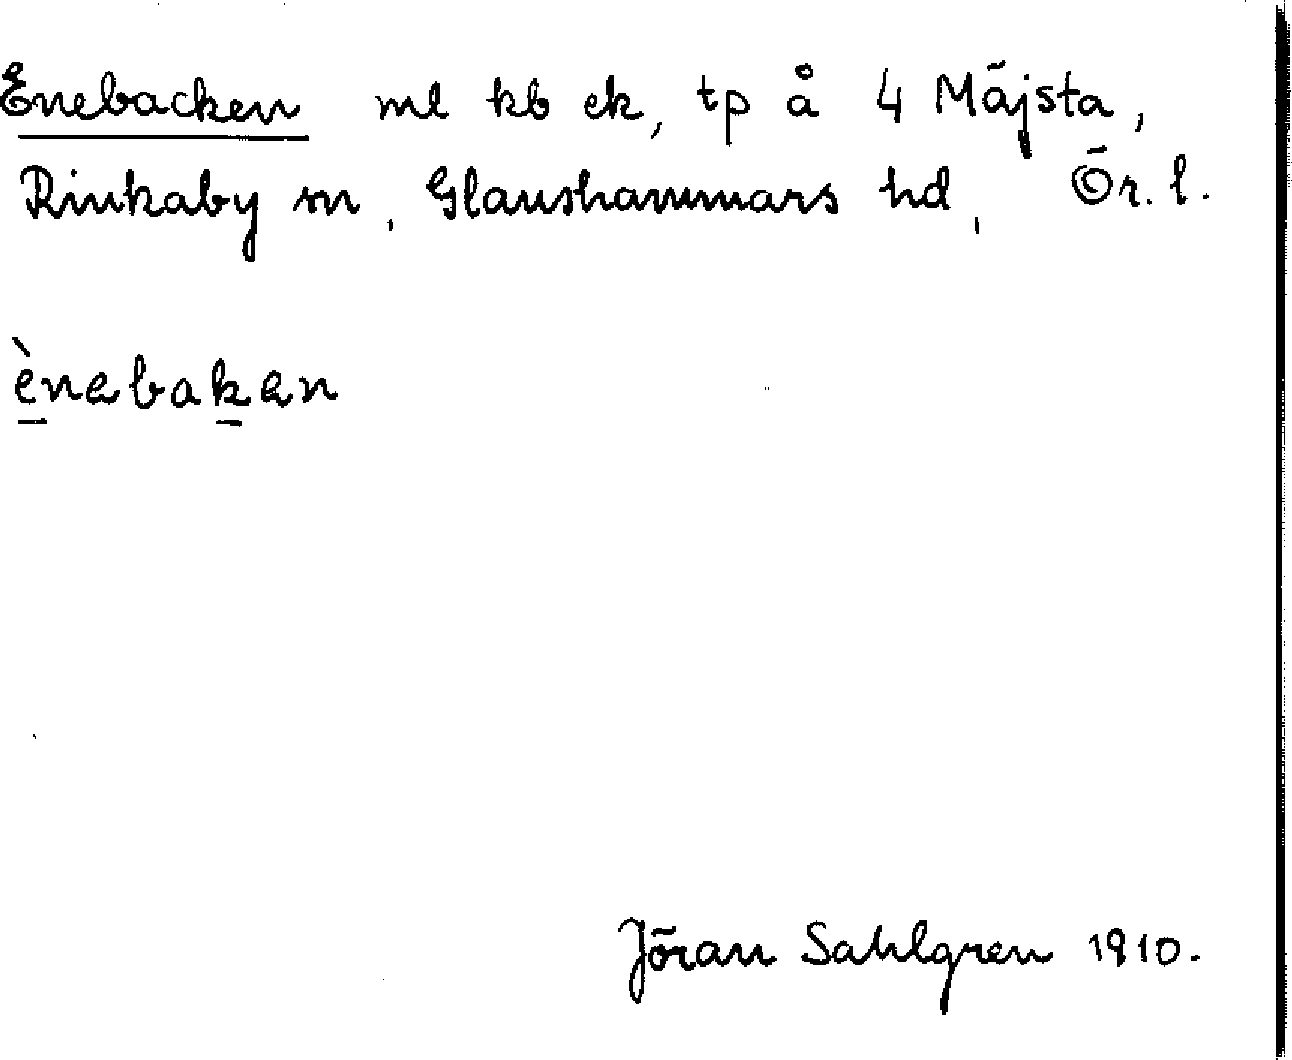 Enebacken ml kb ek, tp å 4 Mäjsta,
Rinkaby sn, Glanshammars hd, Ör. l.
ènebaken
Jöran Sahlgren 1910.